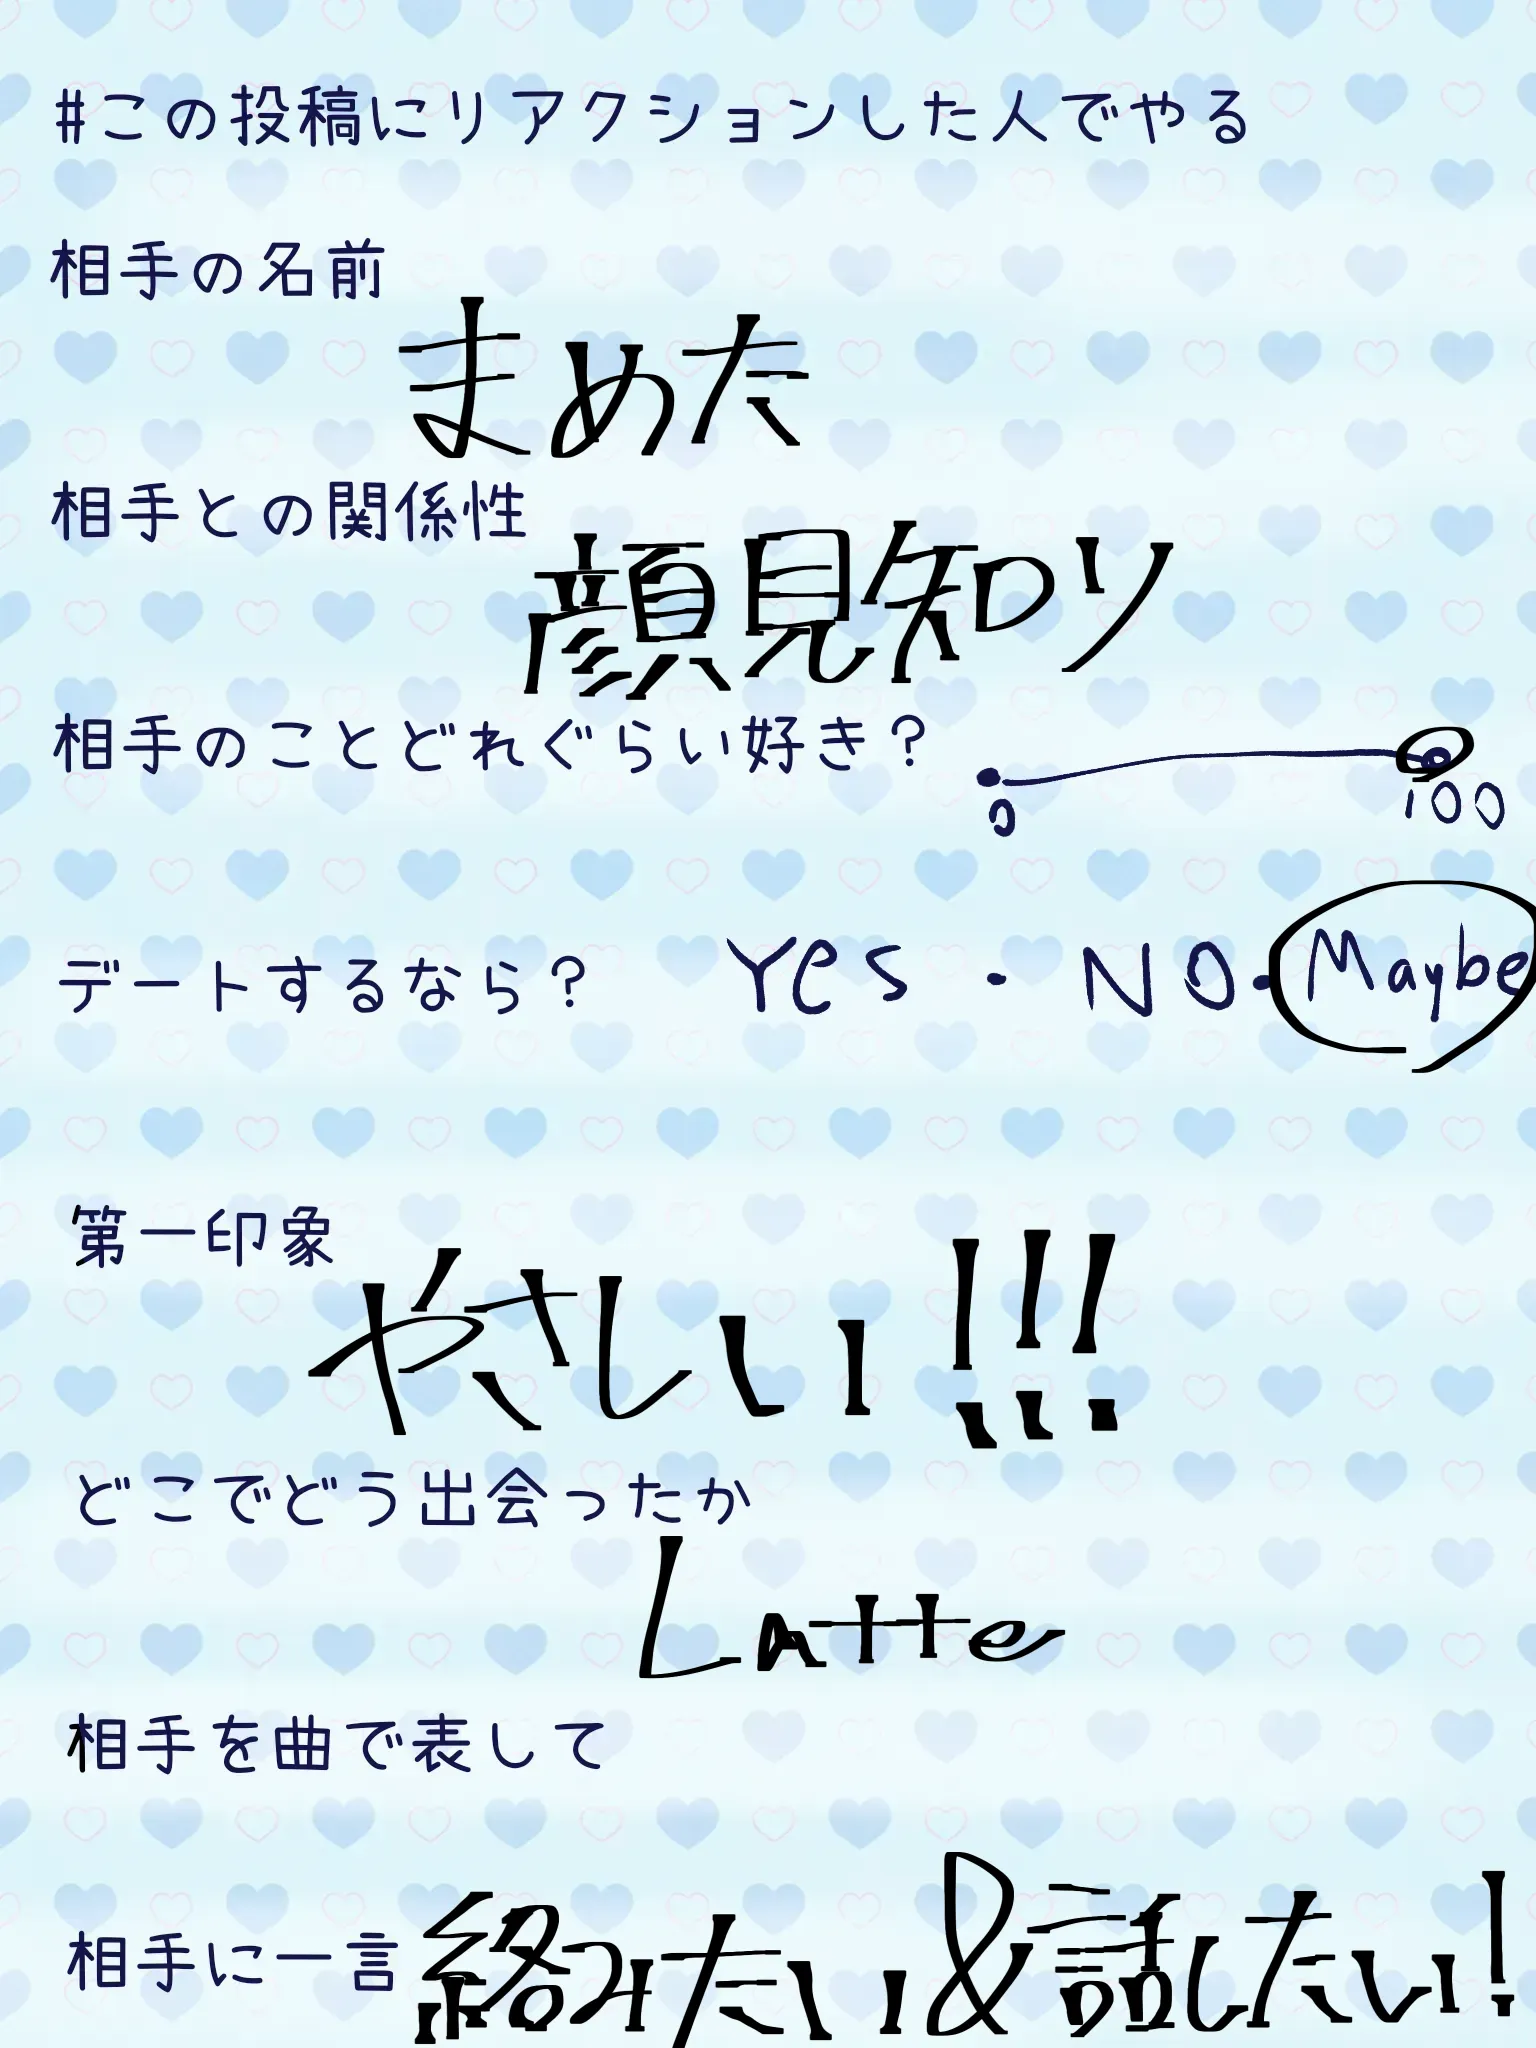 #この投稿にリアクションした人でやる
相手の名前
まめた
相手との関係性
顔見知り
相手のことどれぐらい好き?
0 100
デートするなら? Yes・NO・Maybe
第一印象
やさしい!!!
どこでどう出会ったか
Latte
相手を曲で表して
相手に一言 絡みたい&話したい!